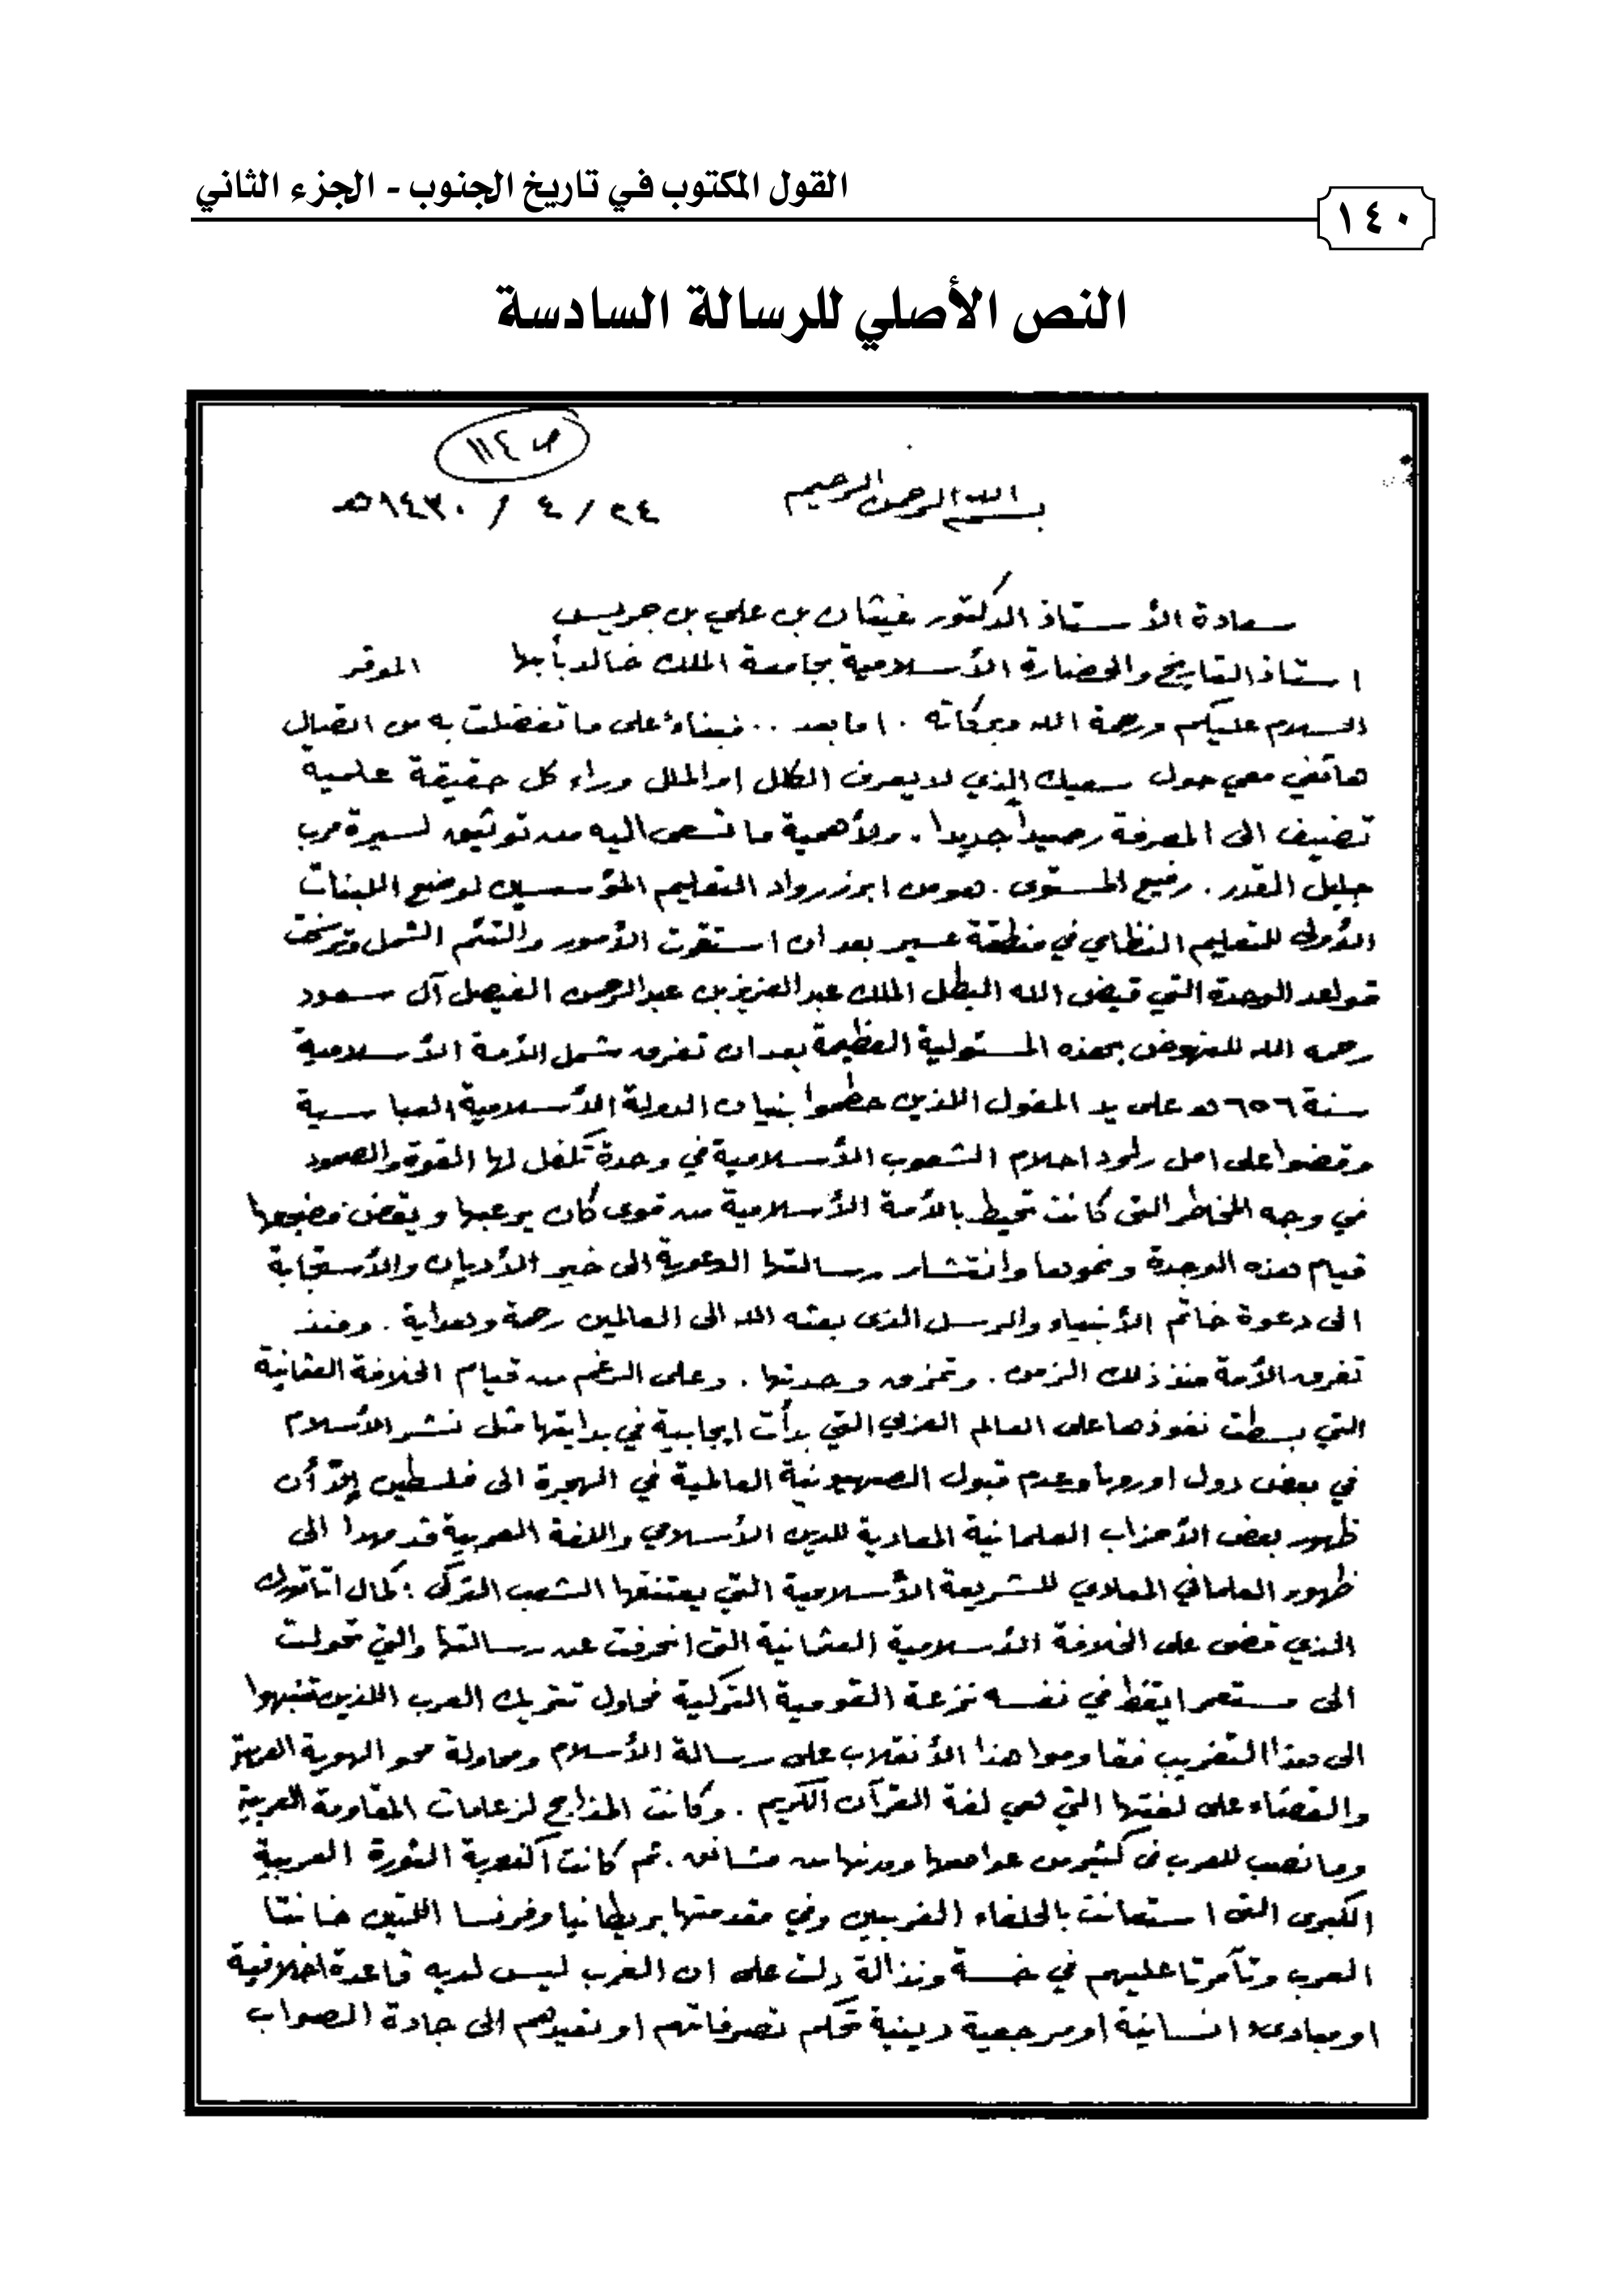 القول المكتوب في تاريخ الجنوب - الجزء الثاني
١٤٠
النص الأصلي للرسالة السادسة
ص ١١٤
بسم الله الرحمن الرحيم
٢٤ / ٤ / ١٤٣٠هـ
سعادة الأستاذ الدكتور غيثان بن علي بن جريس
استاذ التاريخ والحضارة الأسلامية بجامعة الملك خالد بأبها الموقر
السلام عليكم ورحمة الله وبركاته . اما بعد .. فبناءً على ما تفضلت به من اتصال
هاتفي معي حول سعيك الذي لا يعرف الكلل او الملل وراء كل حقيقة علمية
تضيف الى المعرفة رصيداً جديدا . ولأهمية ما تسعى اليه من توثيق لسيرة مرب
جليل القدر . رفيع المستوى . هو من ابرز رواد التعليم المؤسسين لوضع اللبنات
الأولى للتعليم النظامي في منطقة عسير بعد ان استقرت الأمور والتئم الشمل وترسخت
قواعد الوحدة التي قيض الله البطل الملك عبدالعزيز بن عبدالرحمن الفيصل آل سعود
رحمه الله للنهوض بهذه المسئولية العظيمة بعد ان تفرق شمل الأمة الأسلامية
سنة ٦٥٦هـ على يد المغول اللذين حطموا بنيان الدولة الأسلامية العباسية
وقضوا على امل راود احلام الشعوب الأسلامية في وحدة تكفل لها القوة والصمود
في وجه المخاطر التى كانت تحيط بالأمة الأسلامية من قوى كان يرعبها ويقض مضجعها
قيام هذه الوحدة ونموها وانتشار رسالتها الدعوية الى خير الأديان والأستجابة
الى دعوة خاتم الأنبياء والرسل الذى بعثه الله الى العالمين رحمة وهداية . ومنذ
تفرق الأمة منذ ذلك الزمن . وتمزق وحدتها . وعلى الرغم من قيام الخلافة العثمانية
التي بسطت نفوذها على العالم العربي التي بدأت ايجابية في بدايتها مثل نشر الأسلام
في بعض دول اوروبا وعدم قبول الصهيونية العالمية في الهجرة الى فلسطين إلاّ أن
ظهور بعض الأحزاب العلمانية المعادية للدين الأسلامي واللغة العربية قد مهدا الى
ظهور العلماني المعادي للشريعة الأسلامية التي يعتنقها الشعب التركى : كمال اتاتورك
الذي قضى على الخلافة الأسلامية العثمانية التى انحرفت عن رسالتها والتي تحولت
الى مستعمر ايقظ في نفسه نزعة القومية التركية فحاول تتريك العرب اللذين تنبهوا
الى هذا التغريب فقاوموا هذا الأنقلاب على رسالة الأسلام ومحاولة محو الهوية العربية
والقضاء على لغتها التي هي لغة القرآن الكريم . وكانت المذابح لزعامات المقاومة العربية
وما نصب للعرب فى كثير من عواصمها ومدنها من مشانق . ثم كانت اكذوبة الثورة العربية
الكبرى التى استعانت بالحلفاء الغربيين وفي مقدمتها بريطانيا وفرنسا اللتين خانتا
العرب وتآمرتا عليهم في خسة ونذالة دلت على ان الغرب ليس لديه قاعدة اخلاقية
او مبادىء انسانية او مرجعية دينية تحكم تصرفاتهم او تعيدهم الى جادة الصواب